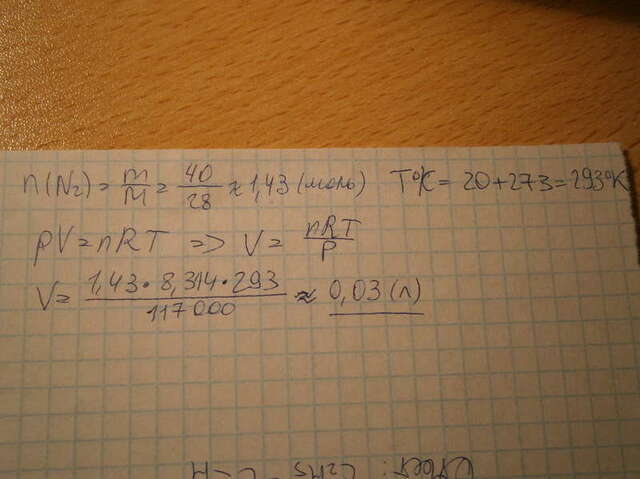 n(N₂) = m/M = 40/28 ≈ 1,43 (моль) T°K = 20 + 273 = 293°K
pV = nRT => V = nRT/P
V = 1,43 · 8,314 · 293 / 117000 ≈ 0,03 (л)
Ответ: C₂H₅ - C - H